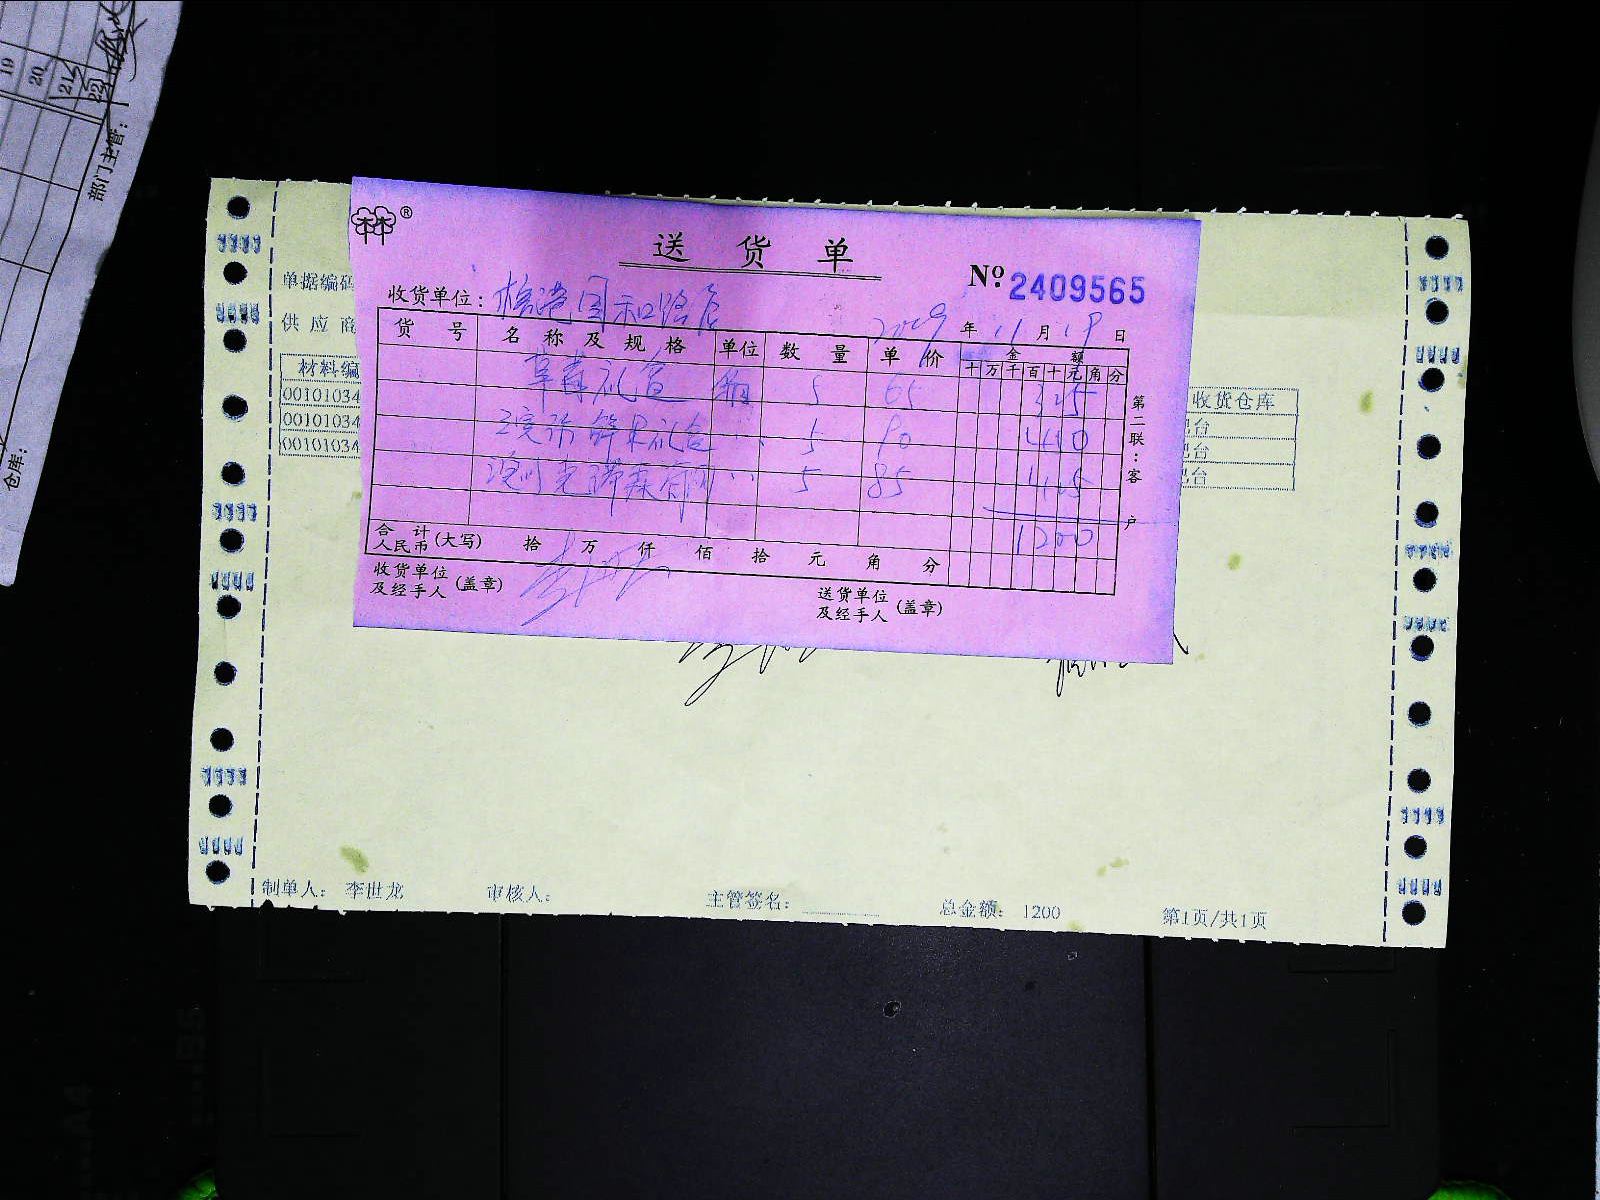 19
20
21
22
部门主管：
仓库：
林 ®
送货单
№ 2409565
收货单位：
国和路店
2009年11月19日
货号 名称及规格 单位 数量 单价 金额
十万千百十元角分
草莓礼盒 箱 5 65 325
5 90 450
5 85 425
1200
合计人民币(大写) 拾 万 仟 佰 拾 元 角 分
收货单位及经手人(盖章) 送货单位及经手人(盖章)
第二联：客户
单据编码
供应商
材料编
00101034
00101034
00101034
收货仓库
台
台
台
制单人： 李世龙 审核人： 主管签名： 总金额： 1200 第1页/共1页